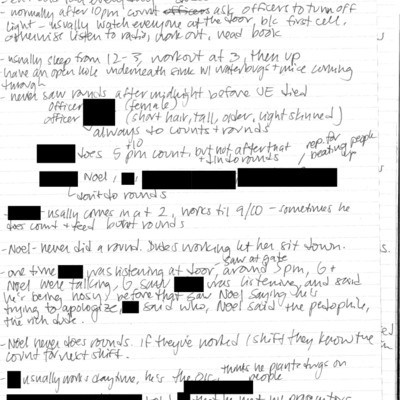 - normally after 10pm count officers ask officers to turn off
light - usually watch everyone at the door, b/c first cell,
otherwise listen to radio, work out, read book
- usually sleep from 12-3, workout at 3, then up
- have an open hole underneath sink w/ waterbugs + mice coming
through
- never saw rounds after midnight before JE died
officer (female)
officer (short hair, tall, older, light skinned)
always do counts + rounds
does 5pm count, but not after that
Noel,
rep. for beating people up
don't do rounds
- usually comes in at 2, works til 9/10 - sometimes he
does count + feed but not rounds
- Noel - never did a round. Dudes working let her sit down.
- one time was listening at door, around 5pm, G +
saw at gate
Noel were talking, G saw was listening, and said
he's being nosy, before that saw Noel saying he's
trying to apologize, said who, Noel said the pedophile,
the rich dude.
- Noel never does rounds. If they've worked 1 shift they know the
count for next shift.
- usually works daytime, he's the
thinks he plants things on
people